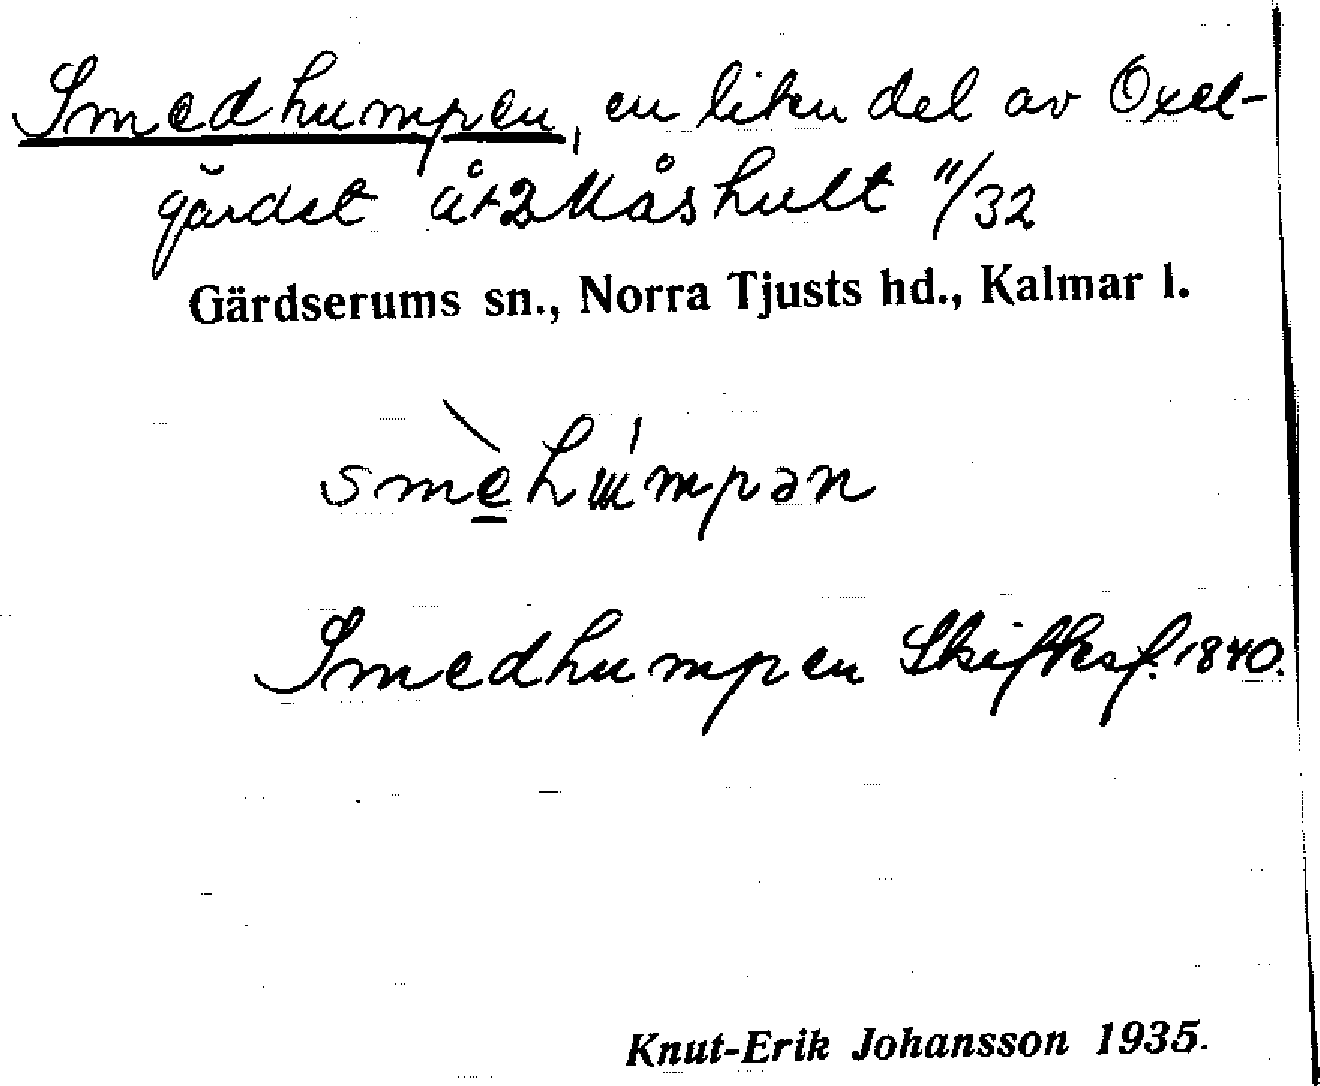 Smedhumpen, en liten del av Oxel-
gärdet åt Måshult 11/32
Gärdserums sn., Norra Tjusts hd., Kalmar l.
smèhúmpən
Smedhumpen Skifтesf. 1840.
Knut-Erik Johansson 1935.